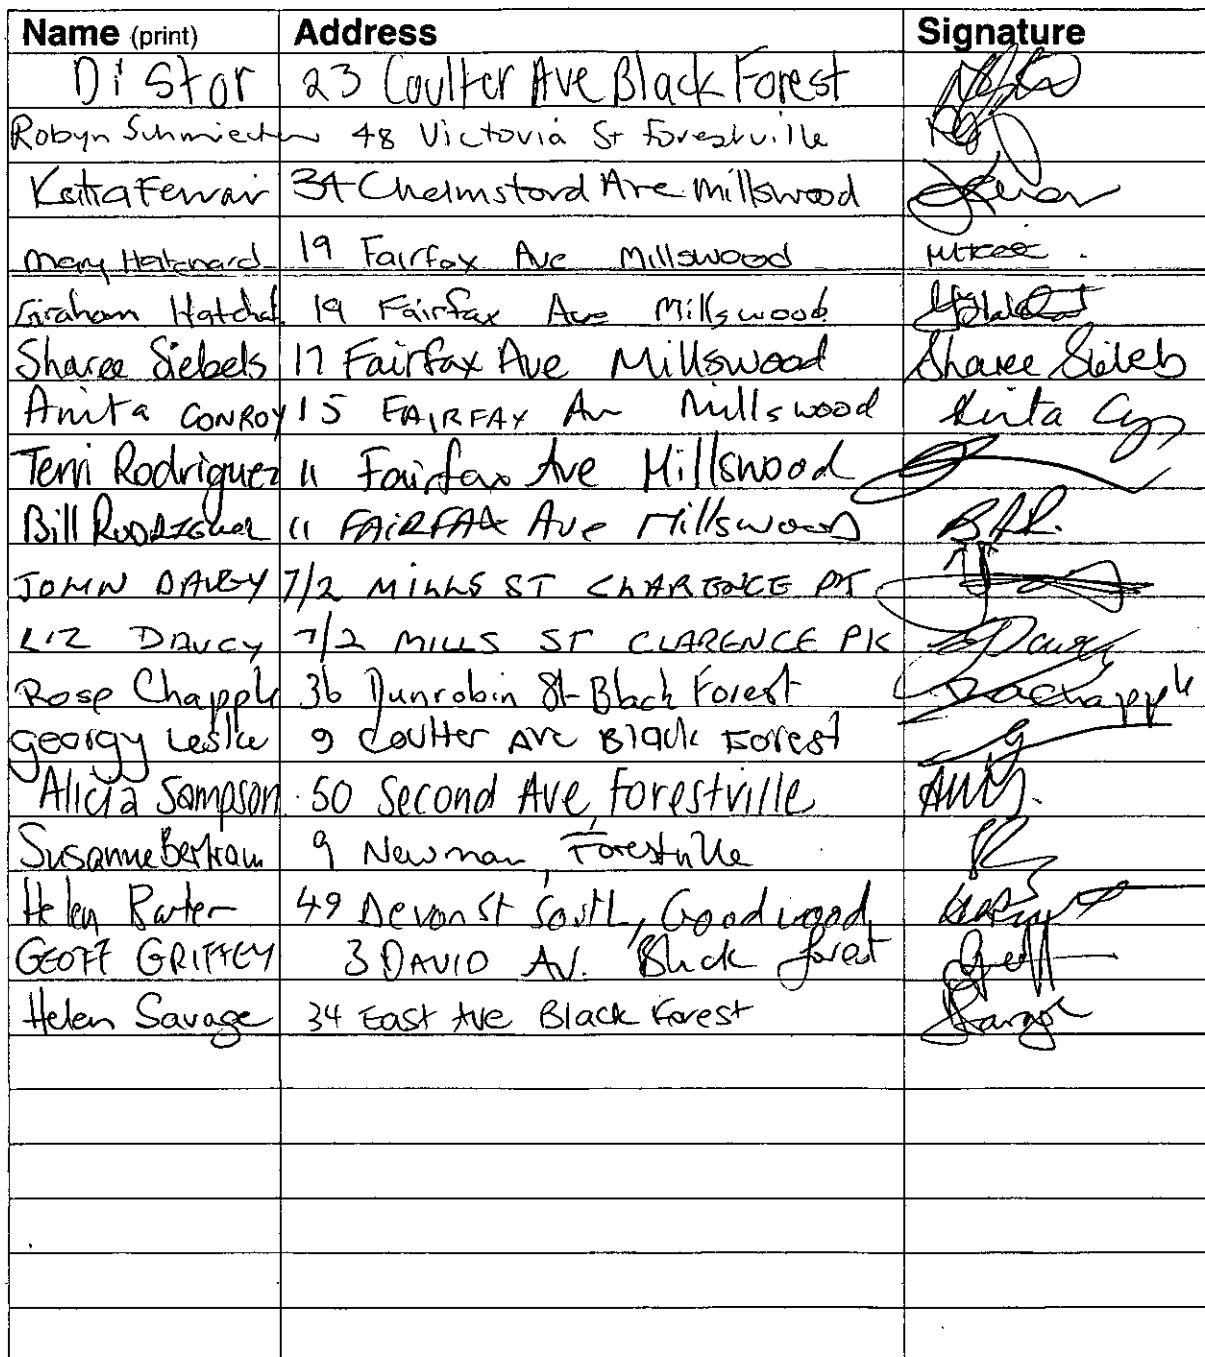 Name (print) Address Signature
Di Stor 23 Coulter Ave Black Forest
Robyn 48 Victoria St Forestville
Katia Ferrari 34 Chelmsford Ave Millswood
Mary Hatchard 19 Fairfax Ave Millswood
Graham Hatchd 19 Fairfax Ave Millswood
Sharee Siebels 17 Fairfax Ave Millswood Sharee Siebels
Anita CONROY 15 FAIRFAX Av Millswood Anita
Terri Rodriguez 11 Fairfax Ave Millswood
Bill RODRIGUEZ 11 FAIRFAX Ave Millswood B.A.R.
JOHN DAVEY 7/2 MILLS ST CLARENCE PK
LIZ DAVEY 7/2 MILLS ST CLARENCE PK Davey
Rose Chapple 36 Dunrobin St Black Forest Chapple
Georgy Leslie 9 Coulter Ave Black Forest
Alicia Sampson 50 Second Ave, Forestville
Susanne Bertram 9 Newman, Forestville
Helen 49 Devon St South, Goodwood
GEOFF GRIFFEY 3 DAVID AV. Black forest Geoff
Helen Savage 34 East Ave Black Forest Savage